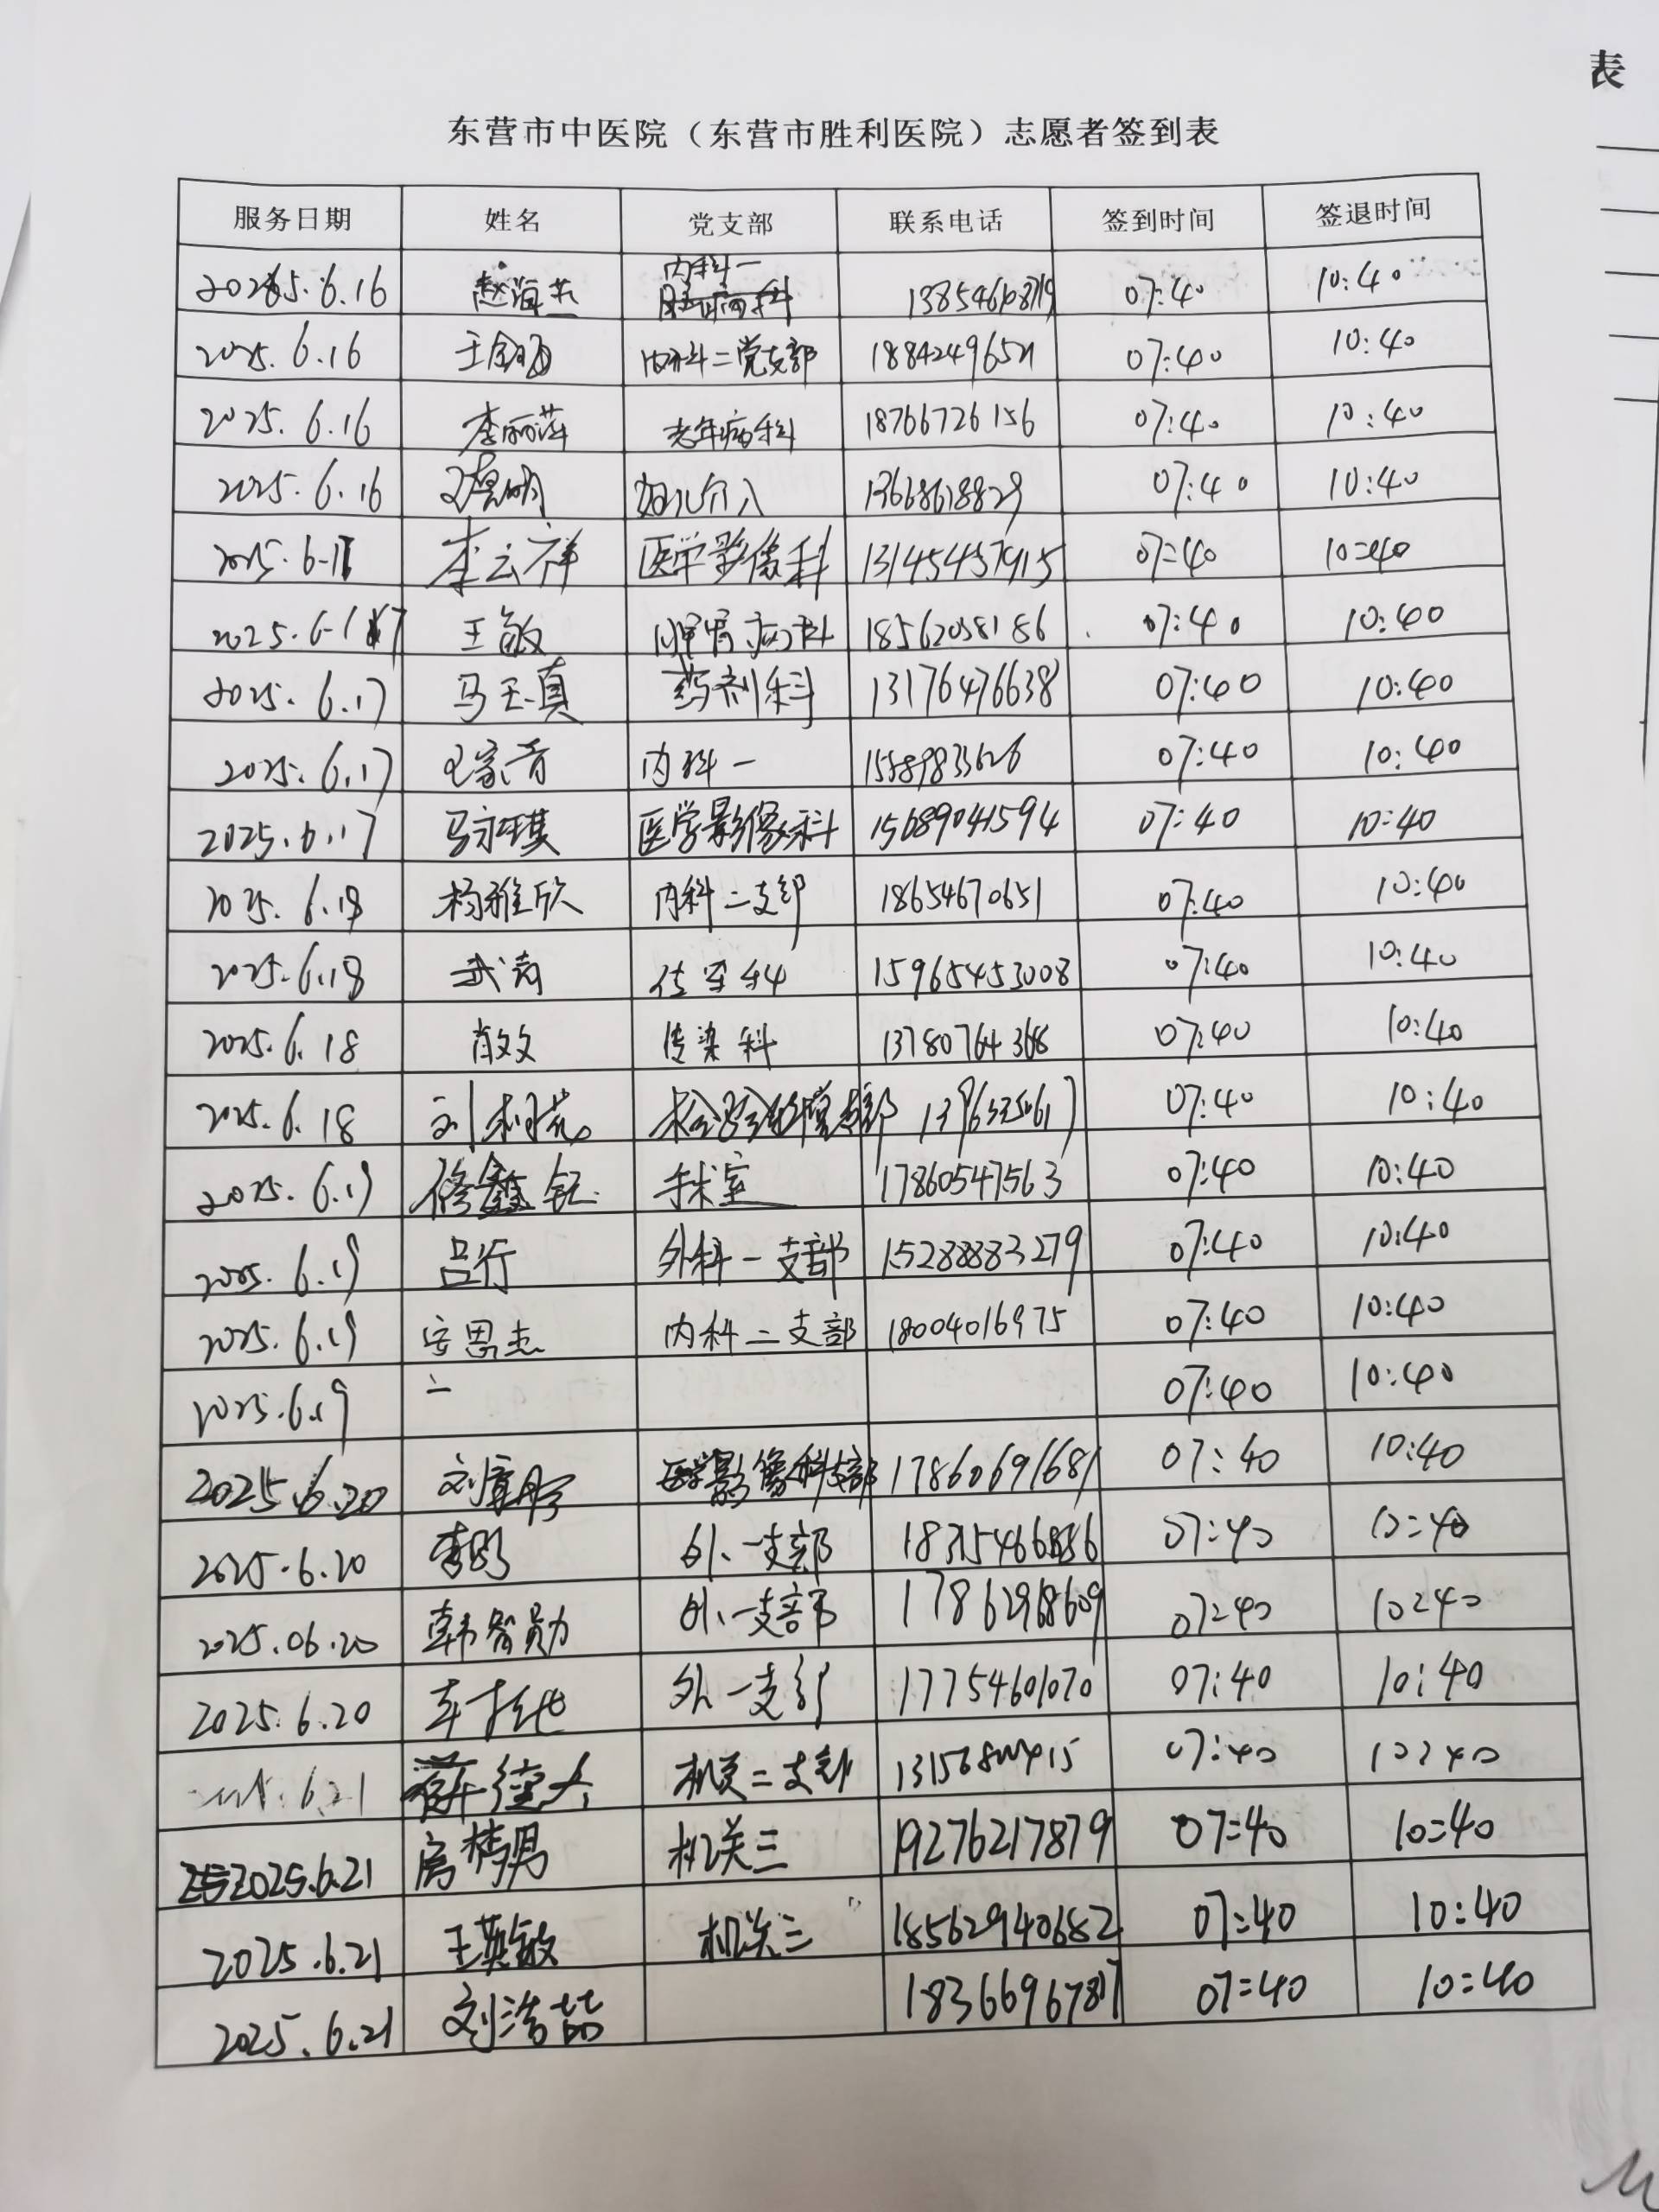 表
东营市中医院（东营市胜利医院）志愿者签到表
服务日期 姓名 党支部 联系电话 签到时间 签退时间
2025.6.16 赵海燕 内科一 07:40 10:40
2025.6.16 内科二党支部 07:40 10:40
2025.6.16 李丽萍 老年病科 18766726156 07:40 10:40
2025.6.16 妇儿介入 13668618829 07:40 10:40
李云祥 医学影像科 07:40 10:40
2025.6.17 王敏 脾胃病科 18562038186 07:40 10:40
2025.6.17 马玉真 药剂科 13176476638 07:40 10:40
2025.6.17 内科一 15589833626 07:40 10:40
2025.6.17 马永琪 医学影像科 15689041594 07:40 10:40
2025.6.18 杨雅欣 内科二支部 18654670651 07:40 10:40
2025.6.18 武 15965453008 07:40 10:40
2025.6.18 肖文 传染科 13780764368 07:40 10:40
2025.6.18 刘 检验科党支部 07:40 10:40
2025.6.19 修鑫钰 手术室 17860547563 07:40 10:40
2025.6.19 吕行 外科一支部 15288883279 07:40 10:40
2025.6.19 安思杰 内科二支部 18004016975 07:40 10:40
2025.6.19 07:40 10:40
2025.6.20 刘 医学影像科支部 17860691681 07:40 10:40
2025.6.20 李 外一支部 07:40 10:40
2025.06.20 韩智勋 外一支部 17862968609 07:40 10:40
2025.6.20 外一支部 17754601070 07:40 10:40
6.21 薛 机关二支部 07:40 10:40
2025.6.21 房楠男 机关三 19276217879 07:40 10:40
2025.6.21 王英敏 机关三 18562940682 07:40 10:40
2025.6.21 刘浩喆 07:40 10:40